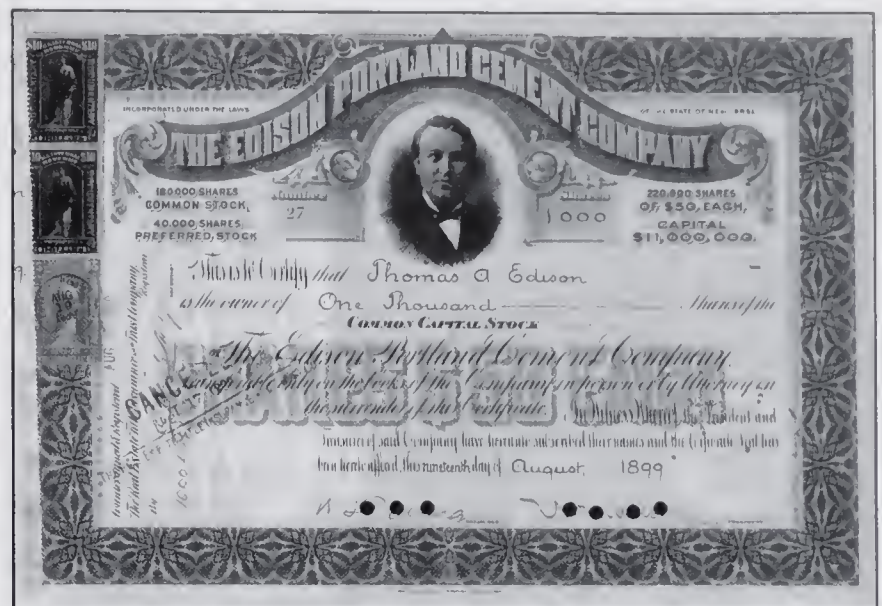 THE EDISON PORTLAND CEMENT COMPANY
INCORPORATED UNDER THE LAWS
OF THE STATE OF NEW JERSEY
180,000 SHARES
COMMON STOCK,
40,000 SHARES
PREFERRED, STOCK
Number
27
Shares
1000
220,000 SHARES
OF $50, EACH,
CAPITAL
$11,000,000.
This is to Certify that Thomas A Edison
is the owner of One Thousand Shares of the
COMMON CAPITAL STOCK
The Edison Portland Cement Company,
transferable only on the books of the Company in person or by Attorney on
the surrender of this Certificate. In Witness Whereof, the President and
Treasurer of said Company have hereunto subscribed their names and the Corporate Seal has
been hereto affixed, this nineteenth day of August, 1899
Countersigned & Registered
By
Registrar
CANCELLED
AUG